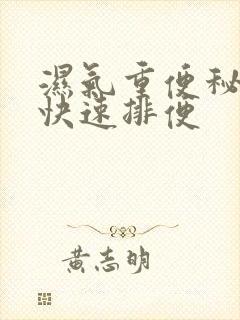 濕氣重便秘
快速排便
黃志明